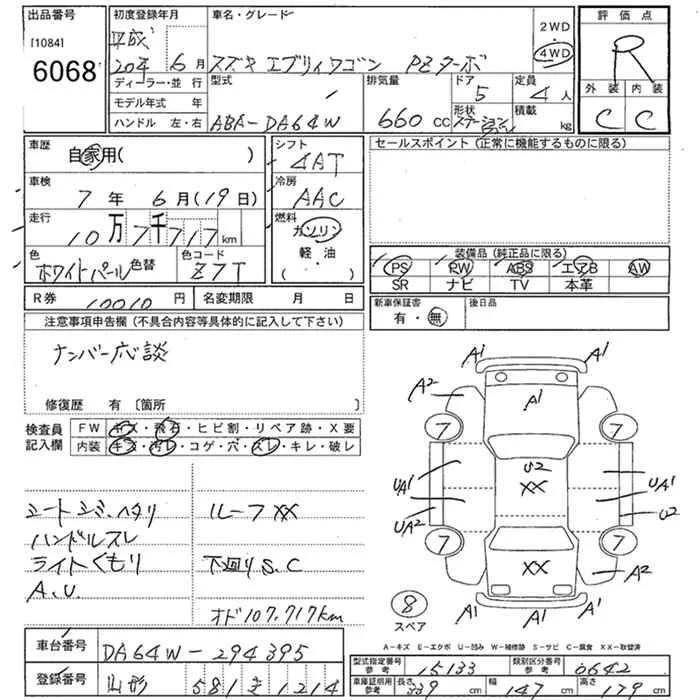 出品番号
[1084]
6068
初度登録年月
平成
20年 6月
車名・グレード
スズキ エブリィワゴン PZターボ
2WD
4WD
評価点
R
外装 内装
C C
ディーラー・並行
モデル年式 年
ハンドル 左・右
型式
ABA-DA64W
排気量
660 CC
ドア
5
形状
ステーション
定員
4人
積載
kg
車歴
自家用( )
車検
7年 6月(19日)
走行
10万7千717km
色
ホワイトパール 色替
色コード
Z7T
シフト
4AT
冷房
AAC
燃料
ガソリン
軽・油
( ・ )
セールスポイント(正常に機能するものに限る)
装備品(純正品に限る)
PS PW ABS エアB AW
SR ナビ TV 本革
R券 10010円 名変期限 月 日
新車保証書
有・無
後日品
注意事項申告欄(不具合内容等具体的に記入して下さい)
ナンバー応談
修復歴 有〔箇所
検査員
記入欄
FW キズ・飛石・ヒビ割・リペア跡・X要
内装 キズ・汚レ・コゲ・穴・スレ・キレ・破レ
シートシミ、ヘタリ
ハンドルスレ
ライトくもり
A.U
ルーフXX
下回りS.C
オド107.717km
A1 A1
A2 A1
7 7
U2
XX
UA1 UA1
UA2 U2
7 7
XX
A2
A1 A1 A1
8
スペア
A-キズ E-エクボ U-凹み W-補修跡 S-サビ C-腐食 XX-取替済
車台番号 DA64W-294395
登録番号 山形 581 き 1214
型式指定番号
参考
15133
類別区分番号
参考
0642
車庫証明用
参考
長さ 339 cm 幅 147 cm 高さ